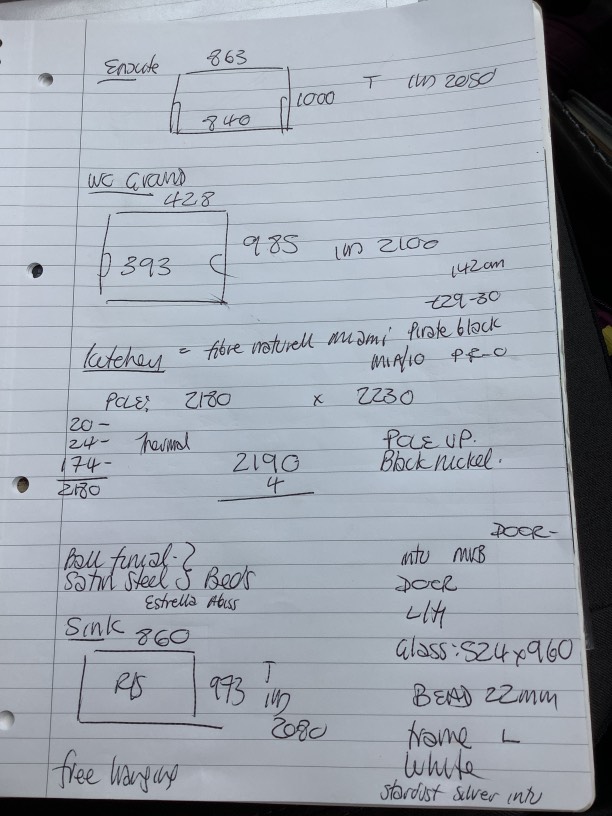 Ensuite 863
840 1000 T IN 2050
WC Grand
428
393 985 IN 2100
142cm
£29-30
Kitchen = fibre naturell miami Pirate black
MIA/10 P.F-O
POLE: 2180 x 2230
20-
24- Thermal
174-
2180
2190
4
POLE UP.
Black nickel.
Ball finial }
Satin Steel } Beds
Estrella Abiss
Sink 860
R/S 973 T
IN
2080
free hanging
DOOR-
intu MVB
DOOR
L/H
Glass: 524 x 960
BEAD 22mm
frame L
White
stardust silver intu